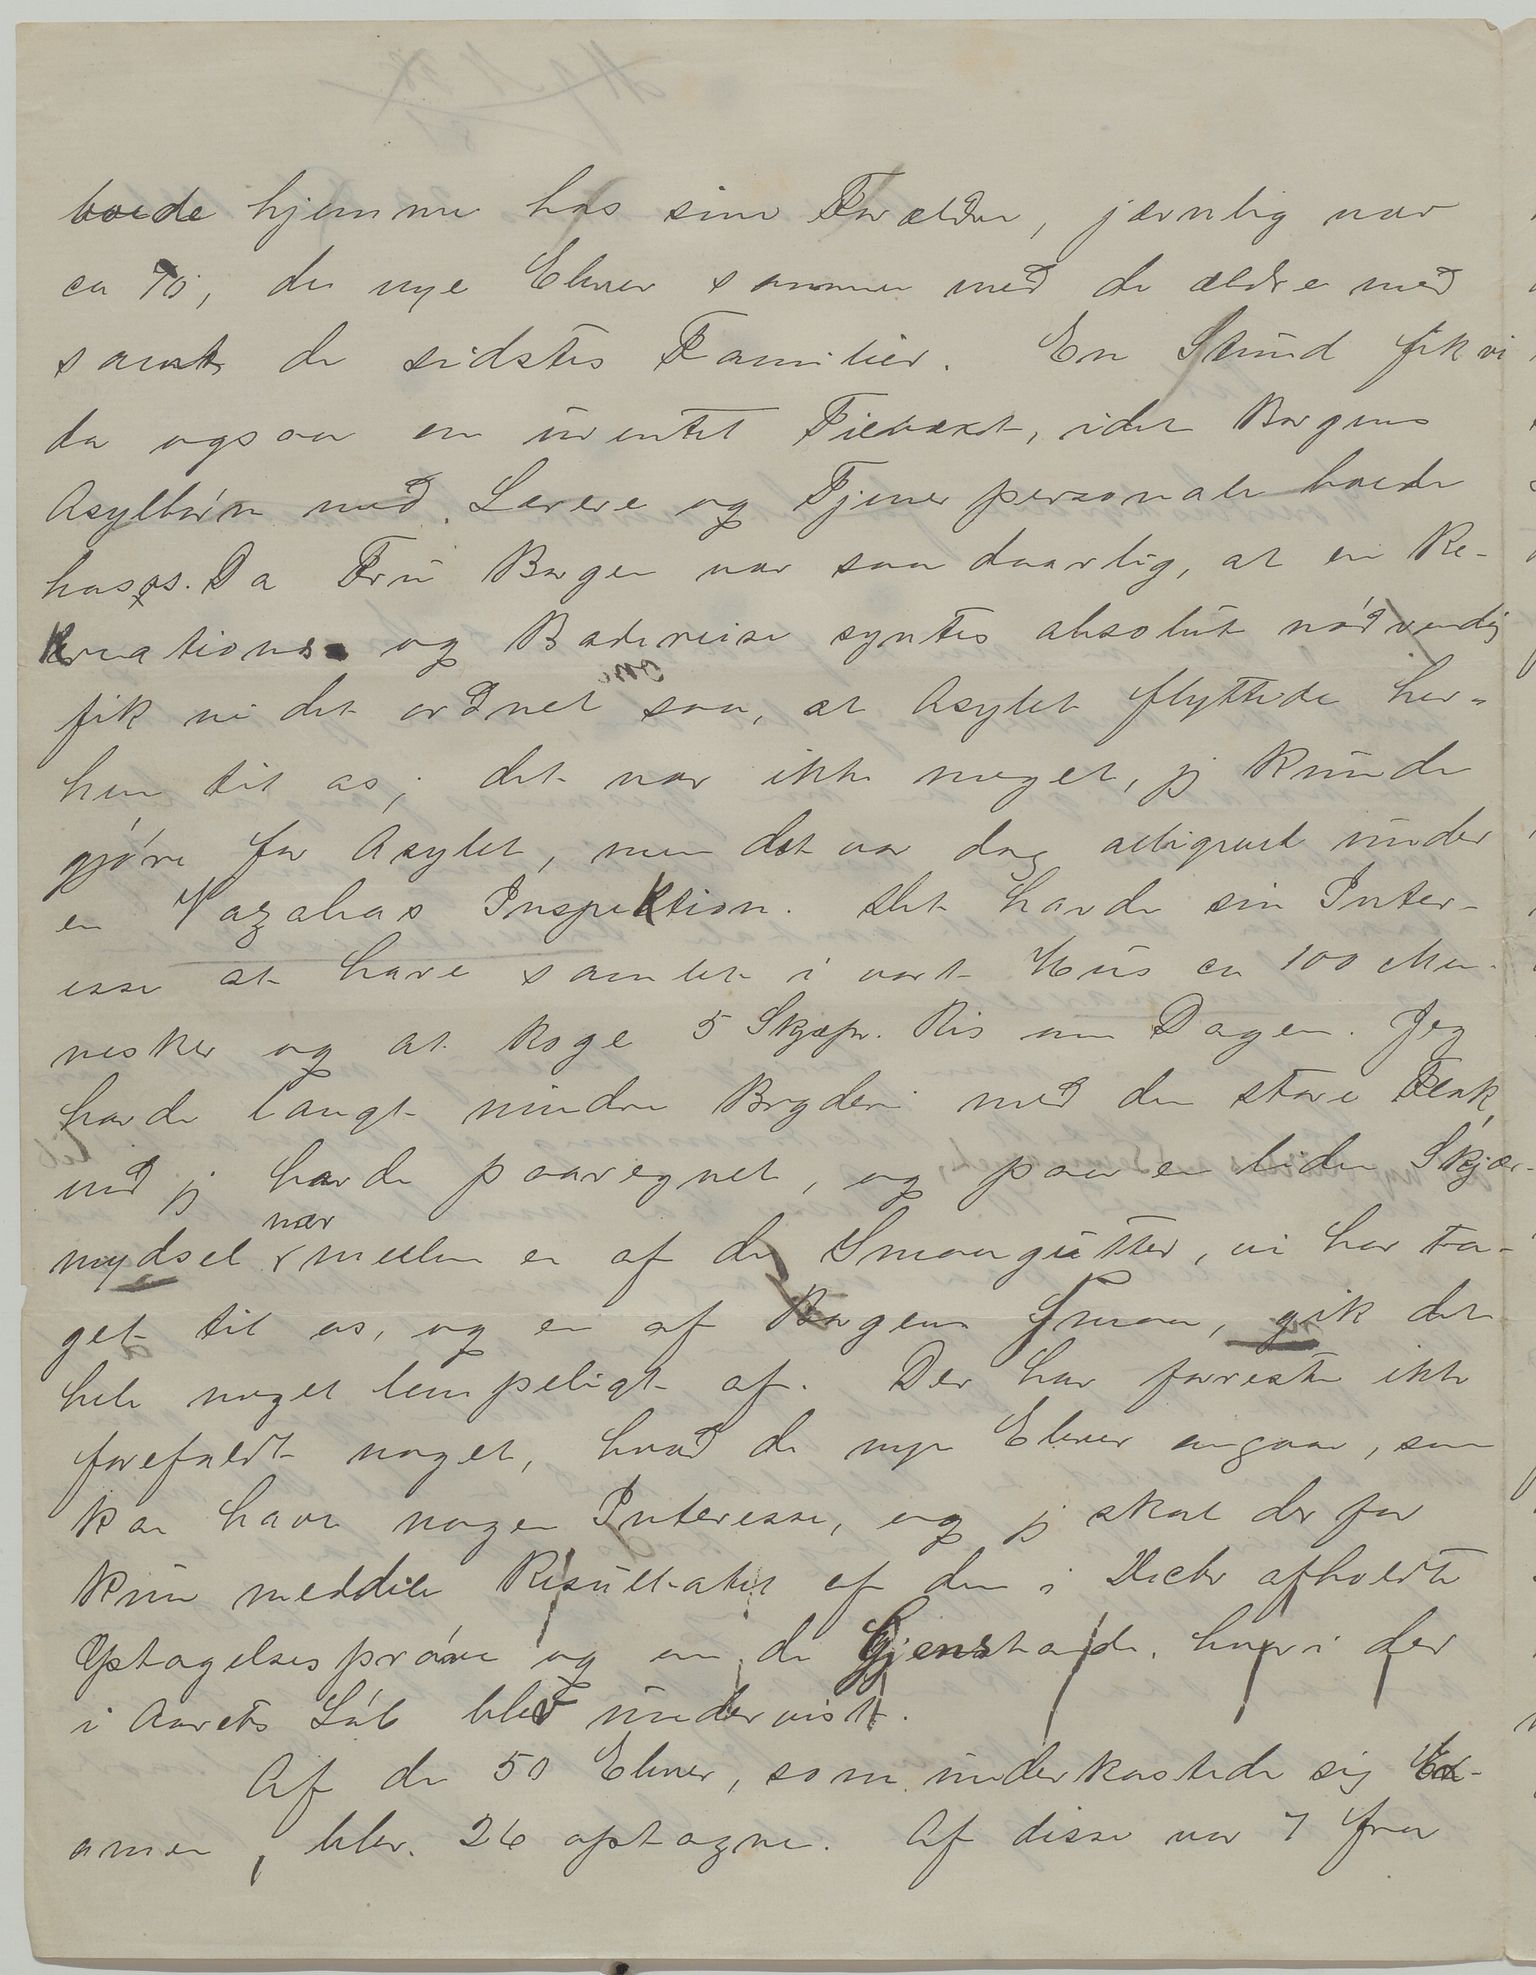 boede hjemme hos sine Forældre, jævnlig var
ca 70, de nye Elever sammen med de ældre med
samt de sidstes Familier. En Stund fik vi
da ogsaa en uventet Tilvæxt, idet Borgens
Asylbørn med Lærere og Tjenerpersonale boede
hos os. Da Fru Borgen var saa daarlig, at en Re-
kreations og Badereise syntes absolut nødvendig
fik vi det ordnet saa, at Asylet flyttede her-
hen til os; det var ikke meget, jeg kunde
gjøre for Asylet, men det var dog alligevel under
en Vazahas Inspektion. Det havde sin Inter-
esse at have samlet i vort Hus ca 100 Men-
nesker og at koge 5 Skjæpr. Ris om Dagen. Jeg
havde langt mindre Bryderi med den store Flok,
end jeg havde paaregnet, og paa en liden Skjær-
mydsel nær mellem en af de Smaagutter, vi har ta-
get til os, og en af Borgens Smaa, gik det
hele noget lempeligt af. Der har forresten ikke
forefaldt noget, hvad de nye Elever angaar, som
kan have nogen Interesse, og jeg skal derfor
kun meddele Resultatet af den i Decbr afholdte
Optagelsesprøve og om de Gjenstande, hvori der
i Aarets Løb blev undervist.
Af de 50 Elever, som underkastede sig Ex-
amen, blev 26 optagne. Af disse var 7 fra